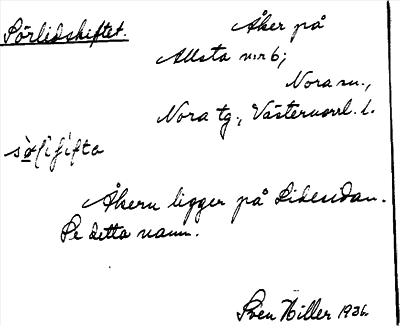 Sörlidskiftet.
Åker på
Allsta nr 6;
Nora sn.,
Nora tg., Västernorrl. l.
Åkern ligger på Lidesidan.
Se detta namn.
Sven Hiller 1936